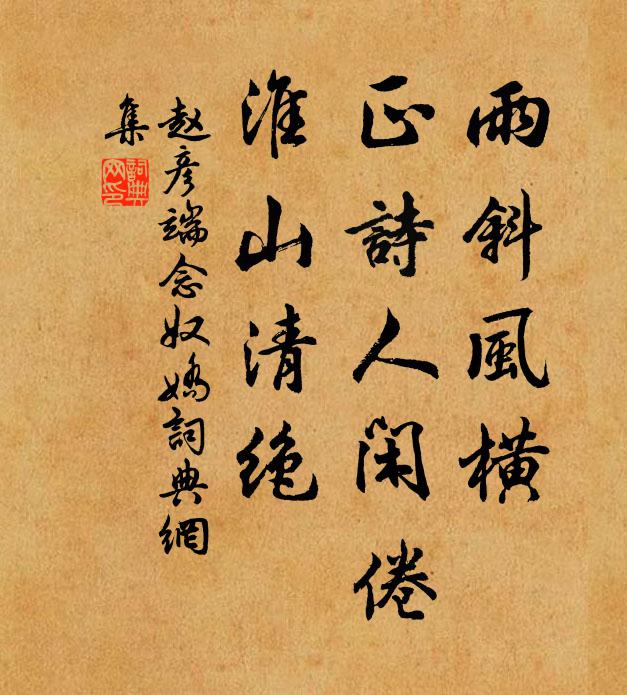 雨斜風橫
正詩人閑倦
淮山清絶
趙彥端念奴嬌詞典網
集
詞典網印